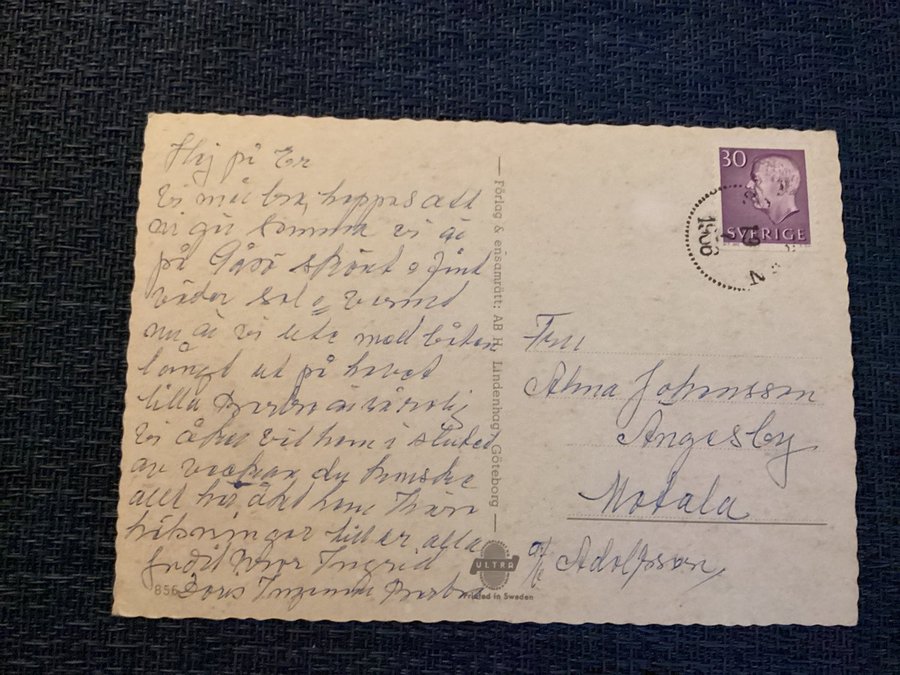 Hej på Er
Vi mår bra, hoppas att
ni gör samma vi är
på Gåsö skönt o fint
väder sol o varmt
nu är vi ute med båten
långt ut på havet
lilla Barbro är
Vi åker väl hem i slutet
av veckan du kanske
allt har åkt hem Kära
hälsningar till er alla
Ingrid
Doris Barbro
Förlag & ensamrätt: AB H. Lindenhag, Göteborg
856
ULTRA
Printed in Sweden
30
SVERIGE
1966
Fru
Alma Johansson
Ängesby
Motala
Adolfsson